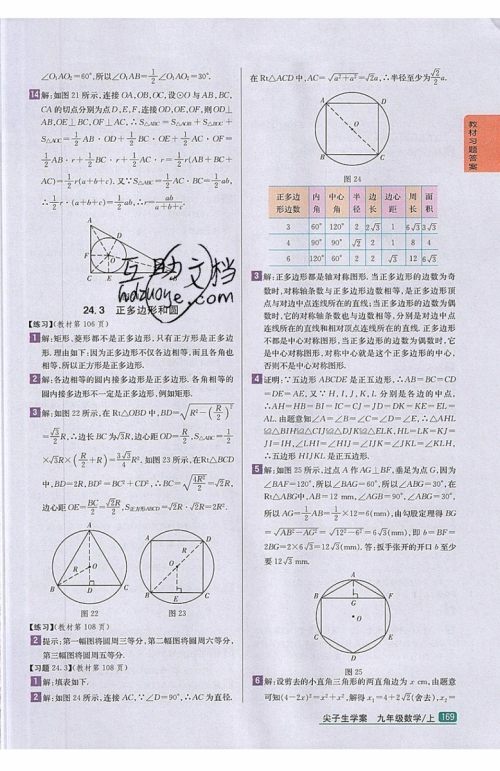 ∠O₁AO₂=60°,所以∠O₁AB=½∠O₁AO₂=30°.
14 解:如图 21 所示,连接 OA,OB,OC,设⊙O 与 AB,BC,
CA 的切点分别为点 D,E,F,连接 OD,OE,OF,则 OD⊥
AB,OE⊥BC,OF⊥AC,∴S△ABC=S△AOB+S△BOC+
S△AOC=½AB·OD+½BC·OE+½AC·OF=
½AB·r+½BC·r+½AC·r=½r(AB+BC+
AC)=½r(a+b+c).又∵S△ABC=½AC·BC=½ab,
∴½r·(a+b+c)=½ab,∴r=ab/(a+b+c).
A
D
F
O
C
E
B
互助文档
hdzuoye.com
24.3 正多边形和圆
【练习】(教材第 106 页)
1 解:矩形、菱形都不是正多边形,只有正方形是正多边
形.理由如下:因为正多边形不仅各边相等,而且各角也
相等,所以正方形是正多边形.
2 解:各边相等的圆内接多边形是正多边形.各角相等的
圆内接多边形不一定是正多边形,例如矩形.
3 解:如图 22 所示,在 Rt△OBD 中,BD=√(R²-(R/2)²)=
√3/2 R,∴边长 BC 为√3R,边心距 OD=R/2,S△ABC=½
×√3R×(R/2+R)=3√3/4 R².如图 23 所示,在Rt△BCD
中,BD=2R,BD²=BC²+CD²,∴BC=√(4R²/2)=√2R,
边心距 OE=BC/2=√2R/2,S正方形ABCD=√2R·√2R=2R².
A
O
R
B
D
C
图 22
A
D
O
R
B
E
C
图 23
【练习】(教材第 108 页)
2 提示:第一幅图将圆周三等分,第二幅图将圆周六等分,
第三幅图将圆周五等分.
【习题 24.3】(教材第 108 页)
1 解:填表如下.
2 解:如图 24 所示,连接 AC,∵∠D=90°,∴AC 为直径.
在 Rt△ACD 中,AC=√(a²+a²)=√2a,∴半径至少为√2/2 a.
A
D
O
B
C
图 24
正多边形边数 内角 中心角 半径 边长 边心距 周长 面积
3 60° 120° 2 2√3 1 6√3 3√3
4 90° 90° √2 2 1 8 4
6 120° 60° 2 2 √3 12 6√3
3 解:正多边形都是轴对称图形.当正多边形的边数为奇
数时,对称轴条数与正多边形边数相等,是正多边形顶
点与对边中点连线所在的直线;当正多边形的边数为偶
数时,它的对称轴条数也与边数相等,分别是对边中点
连线所在的直线和相对顶点连线所在的直线.正多边形
不都是中心对称图形,当正多边形的边数为偶数时,它
是中心对称图形,对称中心就是这个正多边形的中心,
否则不是中心对称图形.
4 证明:∵五边形 ABCDE 是正五边形,∴AB=BC=CD
=DE=AE,又∵H,I,J,K,L 分别是各边的中点,
∴AH=HB=BI=IC=CJ=JD=DK=KE=EL=
AL.由题意知∠A=∠B=∠C=∠D=∠E,∴△AHL
≌△BIH≌△CIJ≌△DJK≌△ELK,HL=LK=KJ=
JI=IH,∠LHI=∠HIJ=∠IJK=∠JKL=∠KLH,
∴五边形 HIJKL 是正五边形.
5 解:如图 25 所示,过点 A 作 AG⊥BF,垂足为点 G,因为
∠BAF=120°,所以∠BAG=60°,所以∠ABG=30°,在
Rt△ABG中,AB=12 mm,∠AGB=90°,∠ABG=30°,
所以 AG=½AB=½×12=6(mm),由勾股定理得 BG
=√(AB²-AG²)=√(12²-6²)=6√3(mm),即 b=BF=
2BG=2×6√3=12√3(mm).答:扳手张开的开口 b 至少
要 12√3 mm.
A
B
G
F
O
C
E
D
图 25
6 解:设剪去的小直角三角形的两直角边为 x cm,由题意
可知(4-2x)²=x²+x²,解得 x₁=4+2√2(舍去),x₂=
教材习题答案
尖子生学案 九年级数学/上 169